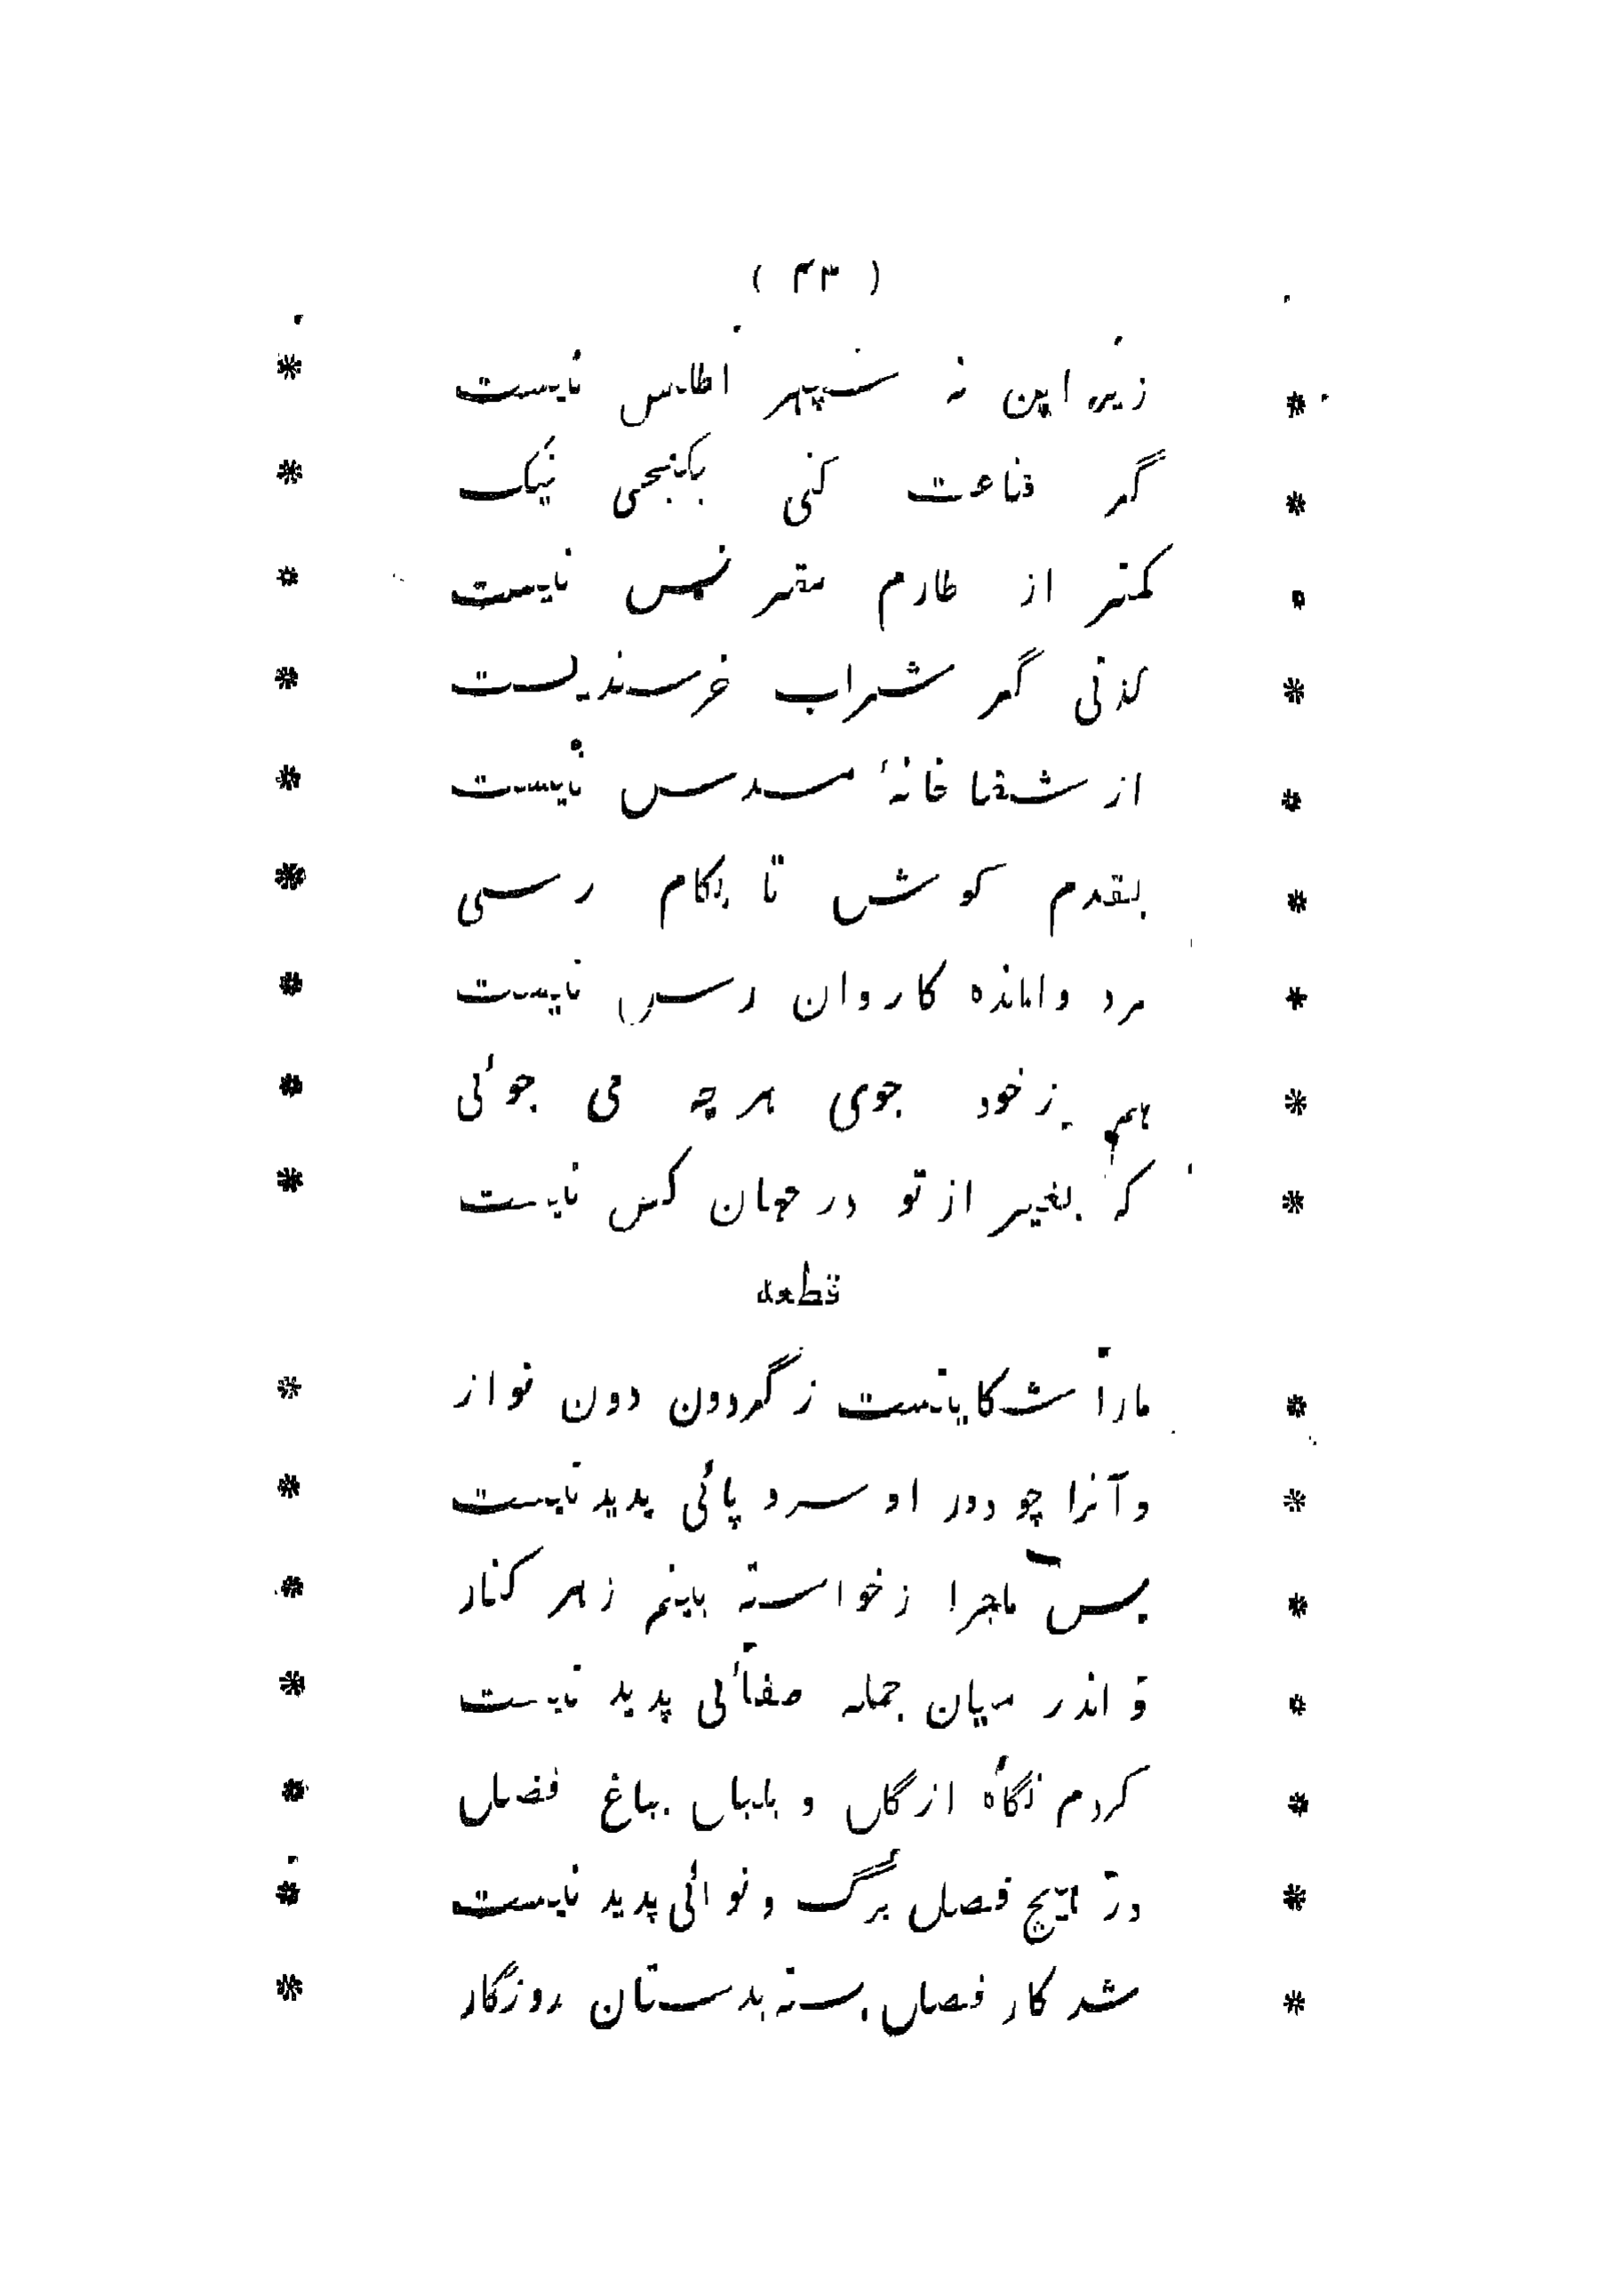 ( ۴۳ )
* زیر این نه سپهر اطلس نیست *
* گر قناعت کنی بکنجی نیک *
* کمتر از طارم مقرنس نیست *
* لذتی گر شراب خرسندیست *
* از شفا خانهٔ مسدس نیست *
* بقدم کوش تا بکام رسی *
* مرد وامانده کاروان رس نیست *
* هم زخود جوی هر چه می جوئی *
* که بغیر از تو در جهان کس نیست *
قطعه
* مارا شکایتست ز گردون دون نواز *
* وآنرا چو دور او سرو پائی پدید نیست *
* بس ماجرا زخواسته بینم ز هر کنار *
* و اندر میان جمله صفائی پدید نیست *
* کردم نگاه از گل و بلبل بباغ فضل *
* در هیچ فصل برگ و نوائی پدید نیست *
* شد کار فضل بسته بدستان روزگار *